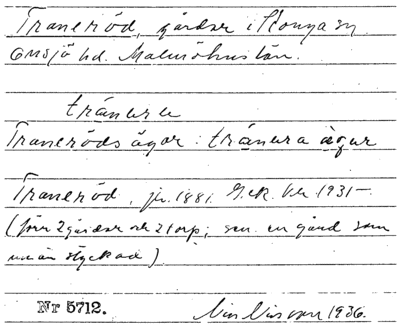 Traneröd, gårdar i Stonga sn
Onsjö hd. Malmöhus län.
tränere
Traneröds ägor: tränera ägur
Traneröd, jr. 1881. G.e.K. 1931–
(förr 2 gårdar och 2 torp; sen. en gård som
är styckad)
Nr 5712.
1936.